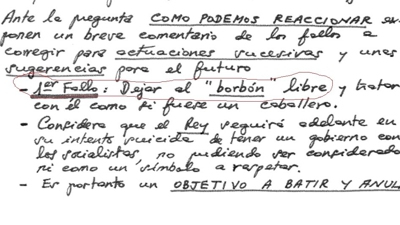 Ante la pregunta COMO PODEMOS REACCIONAR se
ponen un breve comentario de los fallos a
corregir para actuaciones sucesivas y unas
sugerencias para el futuro
- 1er Fallo: Dejar al "borbón" libre y tratar
con él como si fuese un caballero.
- Considera que el Rey seguirá adelante en
su intento suicida de tener un gobierno con
los socialistas, no pudiendo ser considerado
ni como un símbolo a respetar.
- Es portanto un OBJETIVO A BATIR Y ANUL